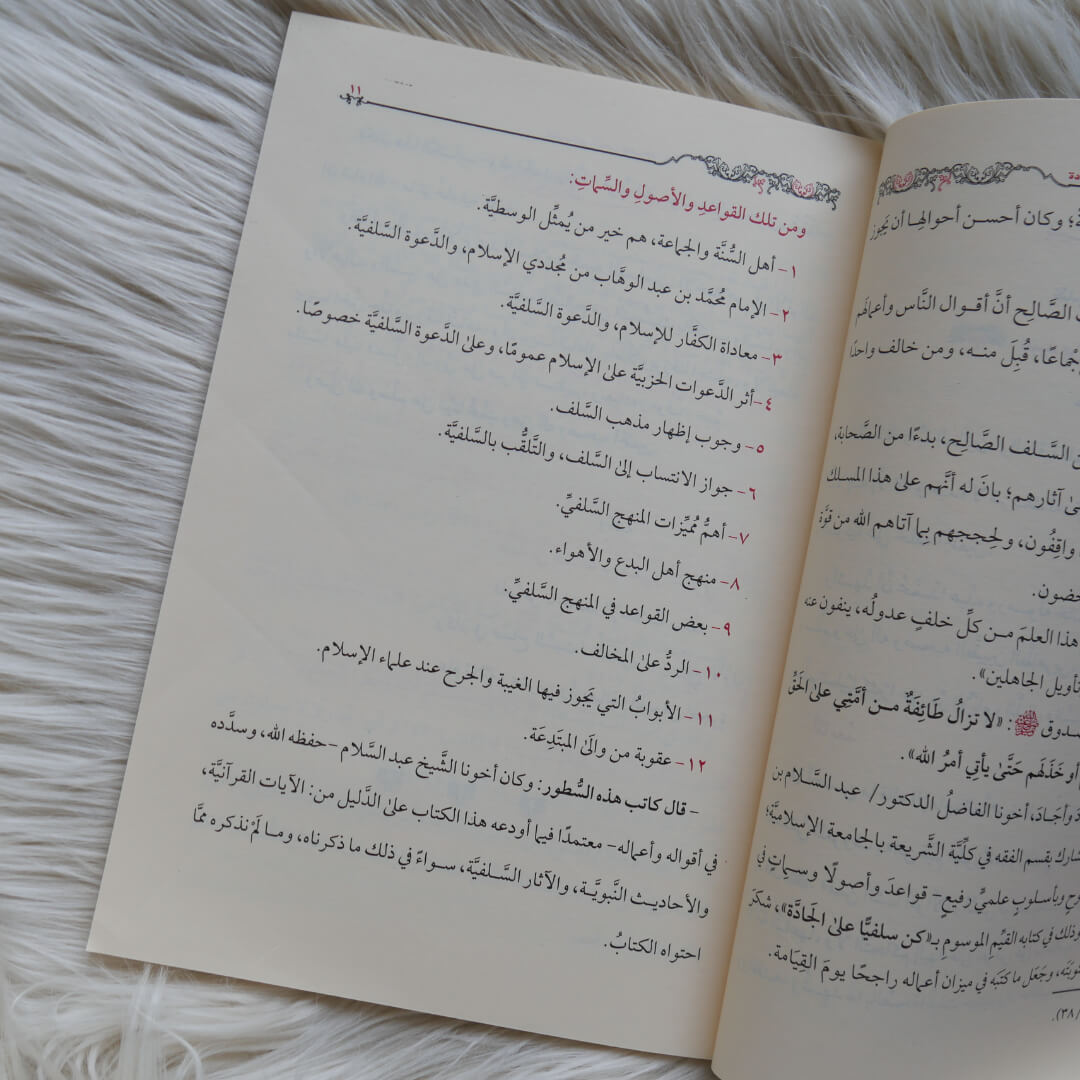 ة؛ وكان أحسن أحوالِها أن يَجوز
الصَّالِح أنَّ أقوال النَّاس وأعمالَهم
جْماعًا، قُبِلَ منه، ومن خالف واحدًا
السَّلف الصَّالِح، بدءًا من الصَّحابة،
آثارهم؛ بانَ له أنَّهم علىٰ هذا المسلك
واقِفُون، ولِحججهم بِما آتاهم الله من قوَّة
هذا العلمَ مـن كلِّ خلفٍ عدولُه، ينفون عنه
تأويل الجاهلين».
ﷺ: «لا تزالُ طَائِفَةٌ مـن أمَّتِي علىٰ الحَقِّ
أو خَذَلَهم حَتَّىٰ يأتِي أمرُ الله».
وأجَادَ، أخونا الفاضلُ الدكتور/ عبد السَّلام بن
شارك بقسم الفقه في كلِّيَّة الشَّريعة بالجامعة الإسلاميَّة؛
وبأسلوبٍ علميٍّ رفيعٍ- قواعدَ وأصولًا وسِماتٍ في
وذلك في كتابه القيِّمِ الموسومِ بـ«كن سلفيًّا علىٰ الجَادَّة»، شكرَ
وجَعَل ما كتبَه في ميزان أعماله راجحًا يومَ القِيَامة.
٣٨).
١١
ومن تلك القواعدِ والأصولِ والسِّماتِ:
١- أهل السُّنَّة والجماعة، هم خير من يُمثِّل الوسطيَّة.
٢- الإمام مُحمَّد بن عبد الوهَّاب من مُجددي الإسلام، والدَّعوة السَّلفيَّة.
٣- معاداة الكفَّار للإسلام، والدَّعوة السَّلفيَّة.
٤- أثر الدَّعوات الحزبيَّة علىٰ الإسلام عمومًا، وعلىٰ الدَّعوة السَّلفيَّة خصوصًا.
٥- وجوب إظهار مذهب السَّلف.
٦- جواز الانتساب إلىٰ السَّلف، والتَّلقُّب بالسَّلفيَّة.
٧- أهمُّ مُمَيِّزات المنهج السَّلفيِّ.
٨- منهج أهل البدع والأهواء.
٩- بعض القواعد في المنهج السَّلفيِّ.
١٠- الردُّ علىٰ المخالف.
١١- الأبوابُ التي يَجوز فيها الغيبة والجرح عند علماء الإسلام.
١٢- عقوبة من والَىٰ المبتَدِعَة.
- قال كاتب هذه السُّطور: وكان أخونا الشَّيخ عبد السَّلام -حفظه الله، وسدَّده
في أقواله وأعماله- معتمدًا فيما أودعه هذا الكتاب علىٰ الدَّليل من: الآيات القرآنيَّة،
والأحاديـث النَّبويَّـة، والآثار السَّـلفيَّة، سـواءً في ذلك ما ذكرناه، ومـا لَمْ نذكره ممَّا
احتواه الكتابُ.